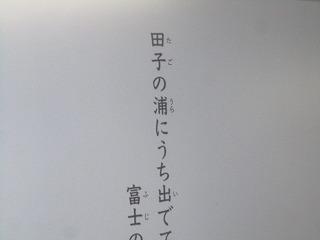 田子の浦にうち出でて
富士の